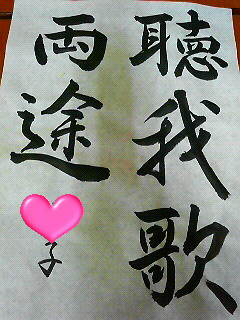 聴我歌
両途
子